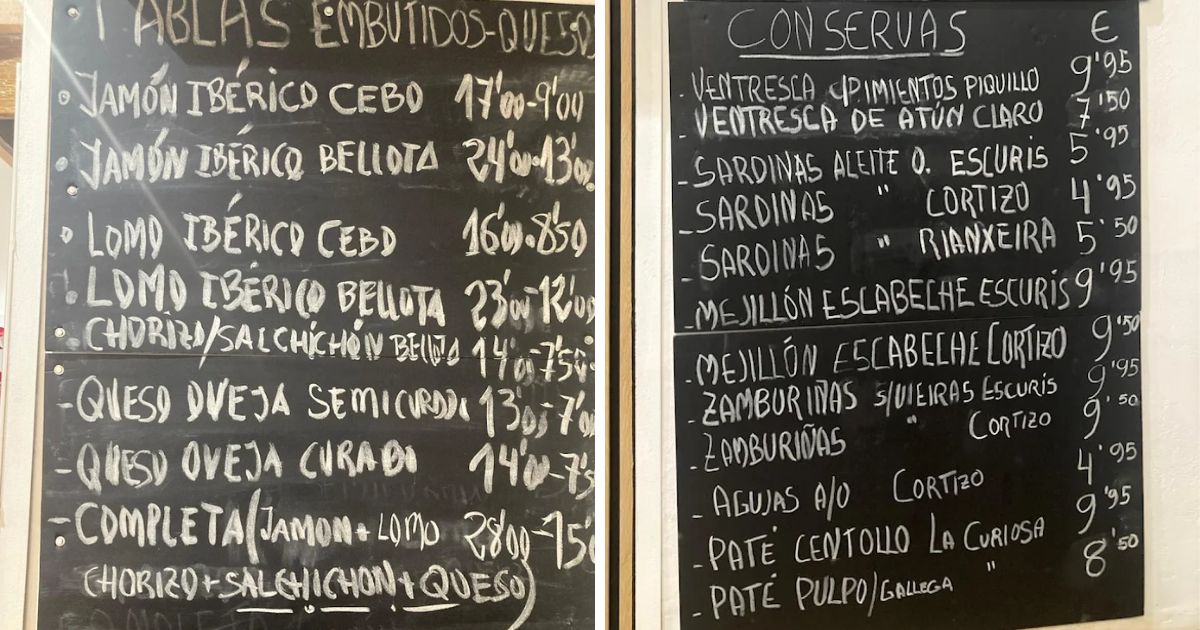 TABLAS EMBUTIDOS-QUESOS
JAMÓN IBÉRICO CEBO 17'00-9'00
JAMÓN IBÉRICO BELLOTA 24'00-13'00
LOMO IBÉRICO CEBO 16'00-8'50
LOMO IBÉRICO BELLOTA 23'00-12'00
CHORIZO/SALCHICHÓN BELLOTA 14'00-7'50
- QUESO OVEJA SEMICURADO 13'00-7'00
- QUESO OVEJA CURADO 14'00-7'5
- COMPLETA (JAMON + LOMO 28'00-15'0
CHORIZO + SALCHICHON + QUESO)
CONSERVAS €
- VENTRESCA C/PIMIENTOS PIQUILLO 9'95
- VENTRESCA DE ATÚN CLARO 7'50
- SARDINAS ACEITE O. ESCURIS 5'95
- SARDINAS " CORTIZO 4'95
- SARDINAS " RIANXEIRA 5'50
- MEJILLÓN ESCABECHE ESCURIS 9'95
- MEJILLÓN ESCABECHE CORTIZO 9'50
- ZAMBURIÑAS S/VIEIRAS ESCURIS 9'95
- ZAMBURIÑAS " CORTIZO 9'50
- AGUJAS A/O CORTIZO 4'95
- PATÉ CENTOLLO LA CURIOSA 9'95
- PATÉ PULPO/GALLEGA " 8'50